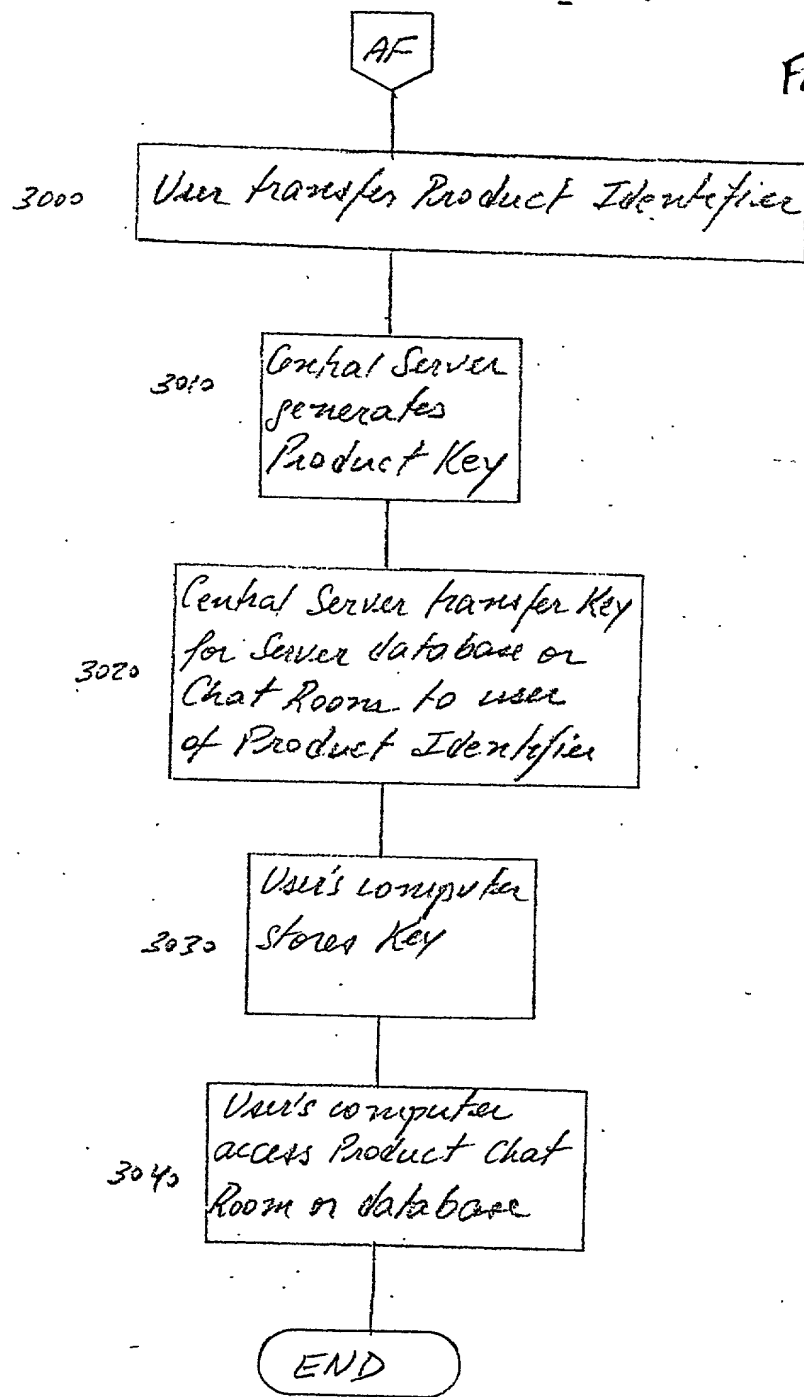 AF
3000
User transfer Product Identifier
3010
Central Server
generates
Product Key
3020
Central Server transfer Key
for Server database or
Chat Room to user
of Product Identifier
3030
User's computer
stores Key
3040
User's computer
access Product Chat
Room or database
END